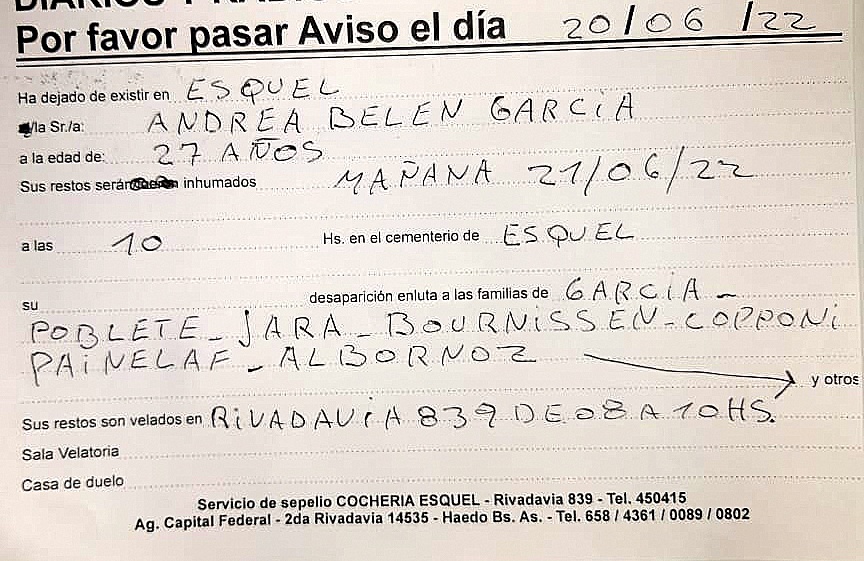 DIARIOS Y RADIO
Por favor pasar Aviso el día 20/06/22
Ha dejado de existir en ESQUEL
la Sr./a: ANDREA BELEN GARCiA
a la edad de: 27 AÑOS
Sus restos serán inhumados MAÑANA 21/06/22
a las 10 Hs. en el cementerio de ESQUEL
su desaparición enluta a las familias de GARCiA -
POBLETE - JARA - BOURNISSEN - COPPONi
PAiNELAF - ALBORNOZ
y otros
Sus restos son velados en RiVADAViA 839 DE 08 A 10 HS.
Sala Velatoria
Casa de duelo
Servicio de sepelio COCHERIA ESQUEL - Rivadavia 839 - Tel. 450415
Ag. Capital Federal - 2da Rivadavia 14535 - Haedo Bs. As. - Tel. 658 / 4361 / 0089 / 0802